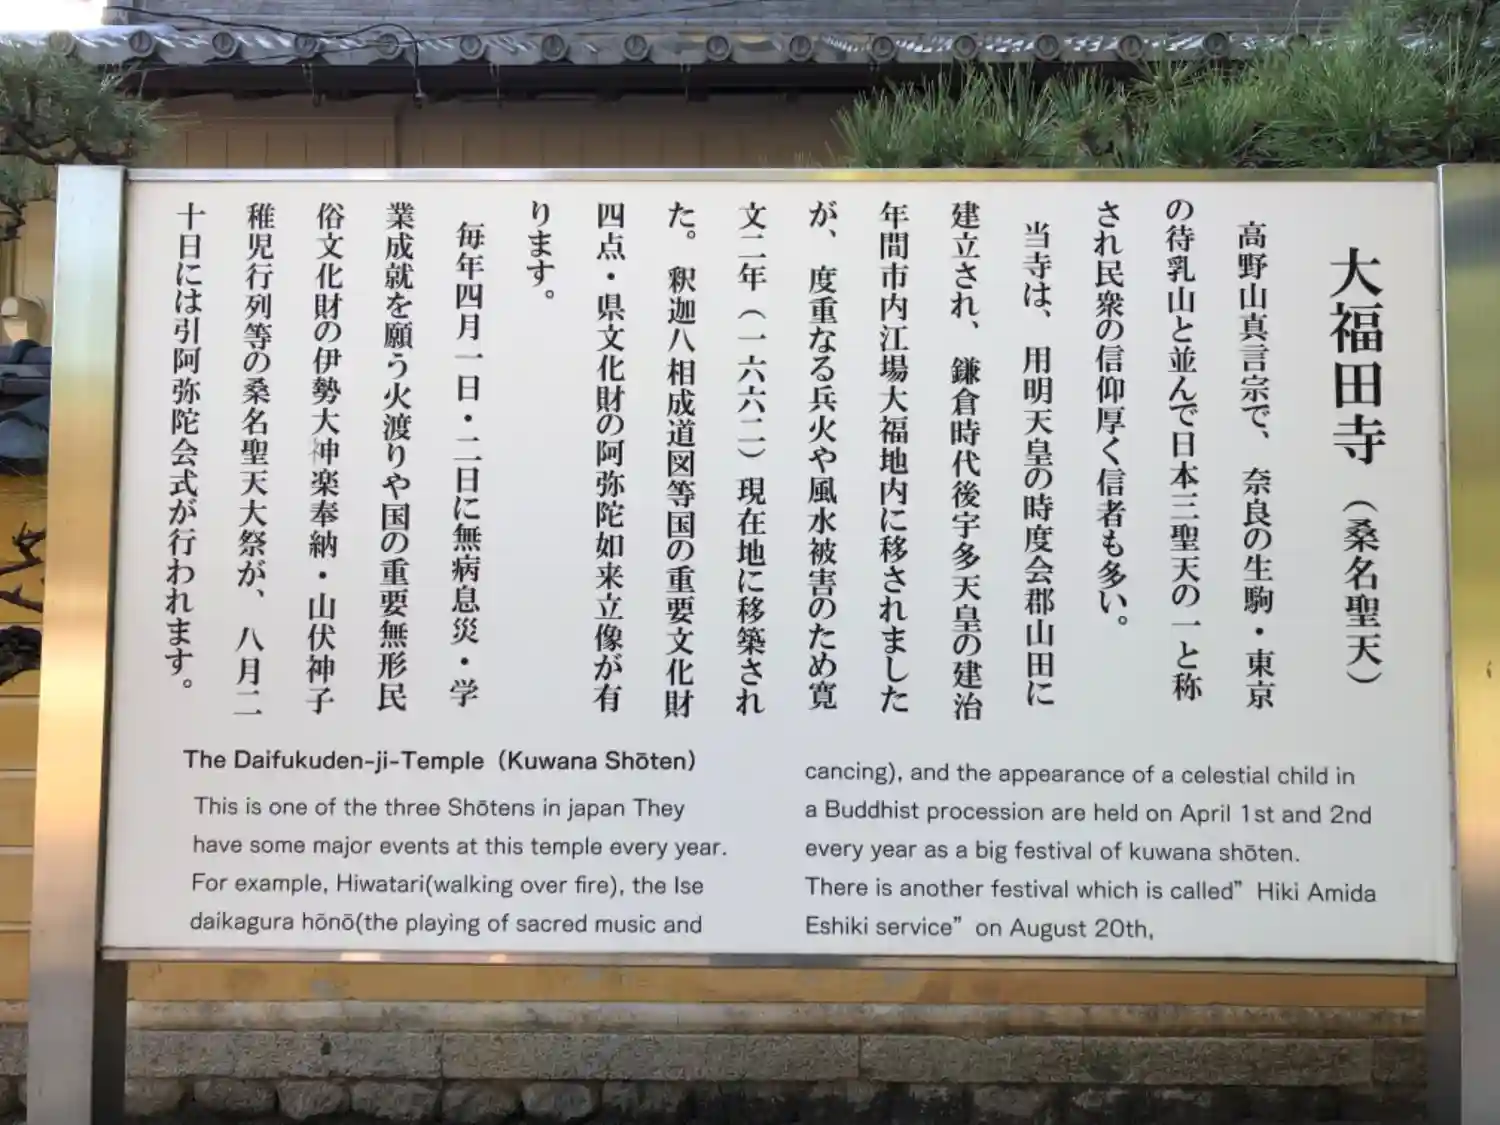 大福田寺（桑名聖天）
高野山真言宗で、奈良の生駒・東京
の待乳山と並んで日本三聖天の一と称
され民衆の信仰厚く信者も多い。
当寺は、用明天皇の時度会郡山田に
建立され、鎌倉時代後宇多天皇の建治
年間市内江場大福地内に移されました
が、度重なる兵火や風水被害のため寛
文二年（一六六二）現在地に移築され
た。釈迦八相成道図等国の重要文化財
四点・県文化財の阿弥陀如来立像が有
ります。
毎年四月一日・二日に無病息災・学
業成就を願う火渡りや国の重要無形民
俗文化財の伊勢大神楽奉納・山伏神子
稚児行列等の桑名聖天大祭が、八月二
十日には引阿弥陀会式が行われます。
The Daifukuden-ji-Temple（Kuwana Shōten）
This is one of the three Shōtens in japan They
have some major events at this temple every year.
For example, Hiwatari(walking over fire), the Ise
daikagura hōnō(the playing of sacred music and
cancing), and the appearance of a celestial child in
a Buddhist procession are held on April 1st and 2nd
every year as a big festival of kuwana shōten.
There is another festival which is called” Hiki Amida
Eshiki service” on August 20th,